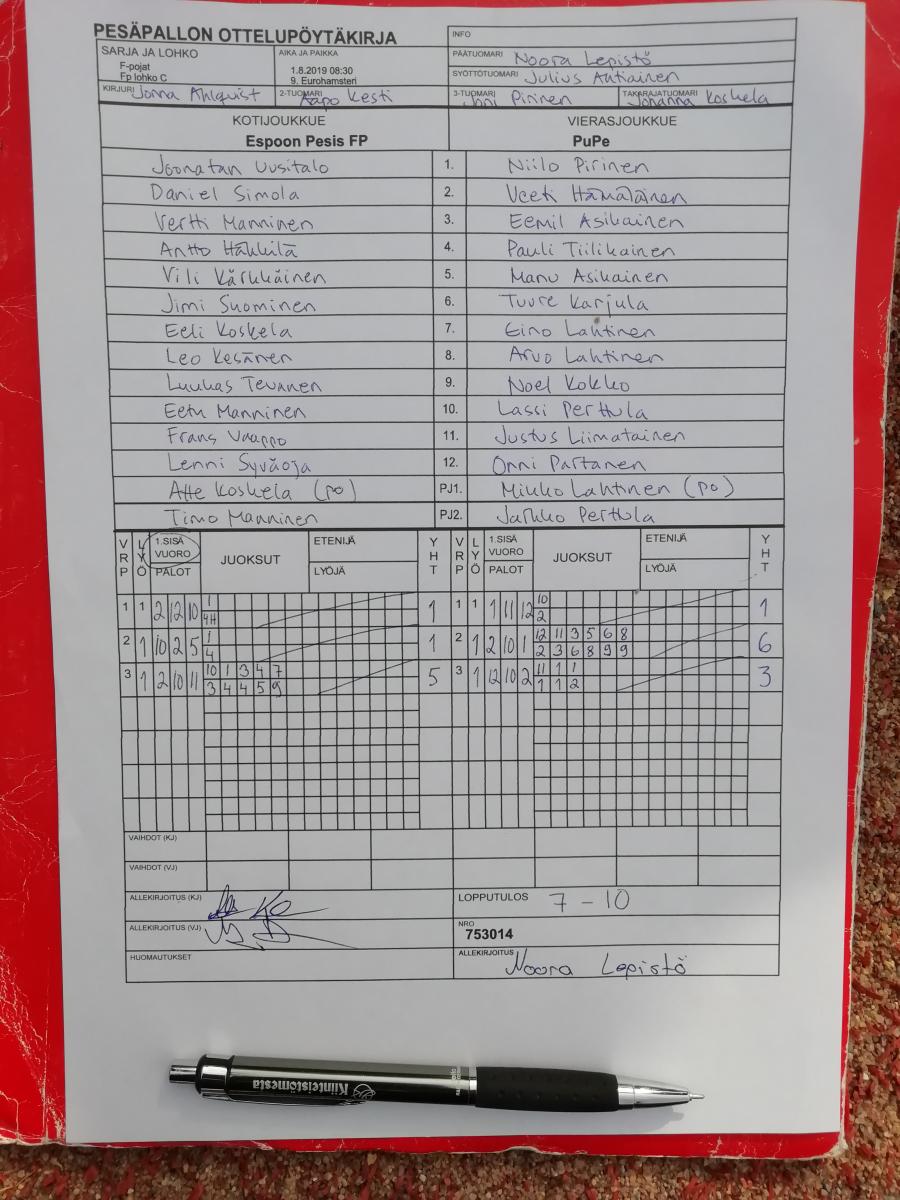 PESÄPALLON OTTELUPÖYTÄKIRJA
INFO
SARJA JA LOHKO
F-pojat
Fp lohko C
AIKA JA PAIKKA
1.8.2019 08:30
9. Eurohamsteri
PÄÄTUOMARI Noora Lepistö
SYÖTTÖTUOMARI Julius Antiainen
KIRJURI Jonna Ahlquist
2-TUOMARI Aapo Kesti
3-TUOMARI Joni Pirinen
TAKARAJATUOMARI Johanna Koskela
KOTIJOUKKUE VIERASJOUKKUE
Espoon Pesis FP PuPe
Joonatan Uusitalo 1. Niilo Pirinen
Daniel Simola 2. Veeti Hämäläinen
Vertti Manninen 3. Eemil Asikainen
Antto Häkkilä 4. Pauli Tiilikainen
Vili Kärkkäinen 5. Manu Asikainen
Jimi Suominen 6. Tuure Karjula
Eeli Koskela 7. Eino Lahtinen
Leo Kesänen 8. Arvo Lahtinen
Luukas Tevanen 9. Noel Kokko
Eetu Manninen 10. Lassi Perttula
Frans Vaappo 11. Justus Liimatainen
Lenni Syväoja 12. Onni Partanen
Atte Koskela (po) PJ1. Mikko Lahtinen (po)
Timo Manninen PJ2. Jarkko Perttula
VRP LYÖ 1.SISÄ VUORO PALOT JUOKSUT ETENIJÄ LYÖJÄ YHT VRP LYÖ 1.SISÄ VUORO PALOT JUOKSUT ETENIJÄ LYÖJÄ YHT
1 1 2 12 10 1 1 1 1 1 11 12 10 1
4H 2
2 1 10 2 5 1 1 2 1 2 10 1 12 11 3 5 6 8 6
4 2 3 6 8 9 9
3 1 2 10 11 10 1 3 4 7 5 3 1 12 10 2 11 1 1 3
3 4 4 5 9 1 1 2
VAIHDOT (KJ)
VAIHDOT (VJ)
ALLEKIRJOITUS (KJ)
LOPPUTULOS 7 - 10
ALLEKIRJOITUS (VJ)
NRO
753014
HUOMAUTUKSET
ALLEKIRJOITUS Noora Lepistö
Kiinteistömesta